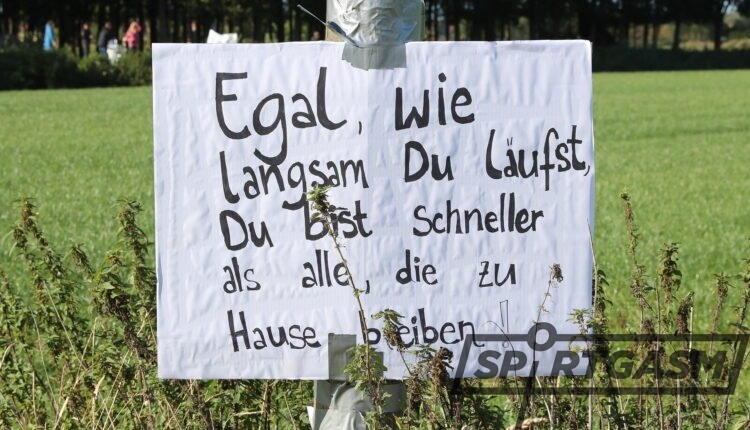 Egal, wie
langsam Du läufst,
Du bist schneller
als alle, die zu
Hause bleiben!
SPORTGASM